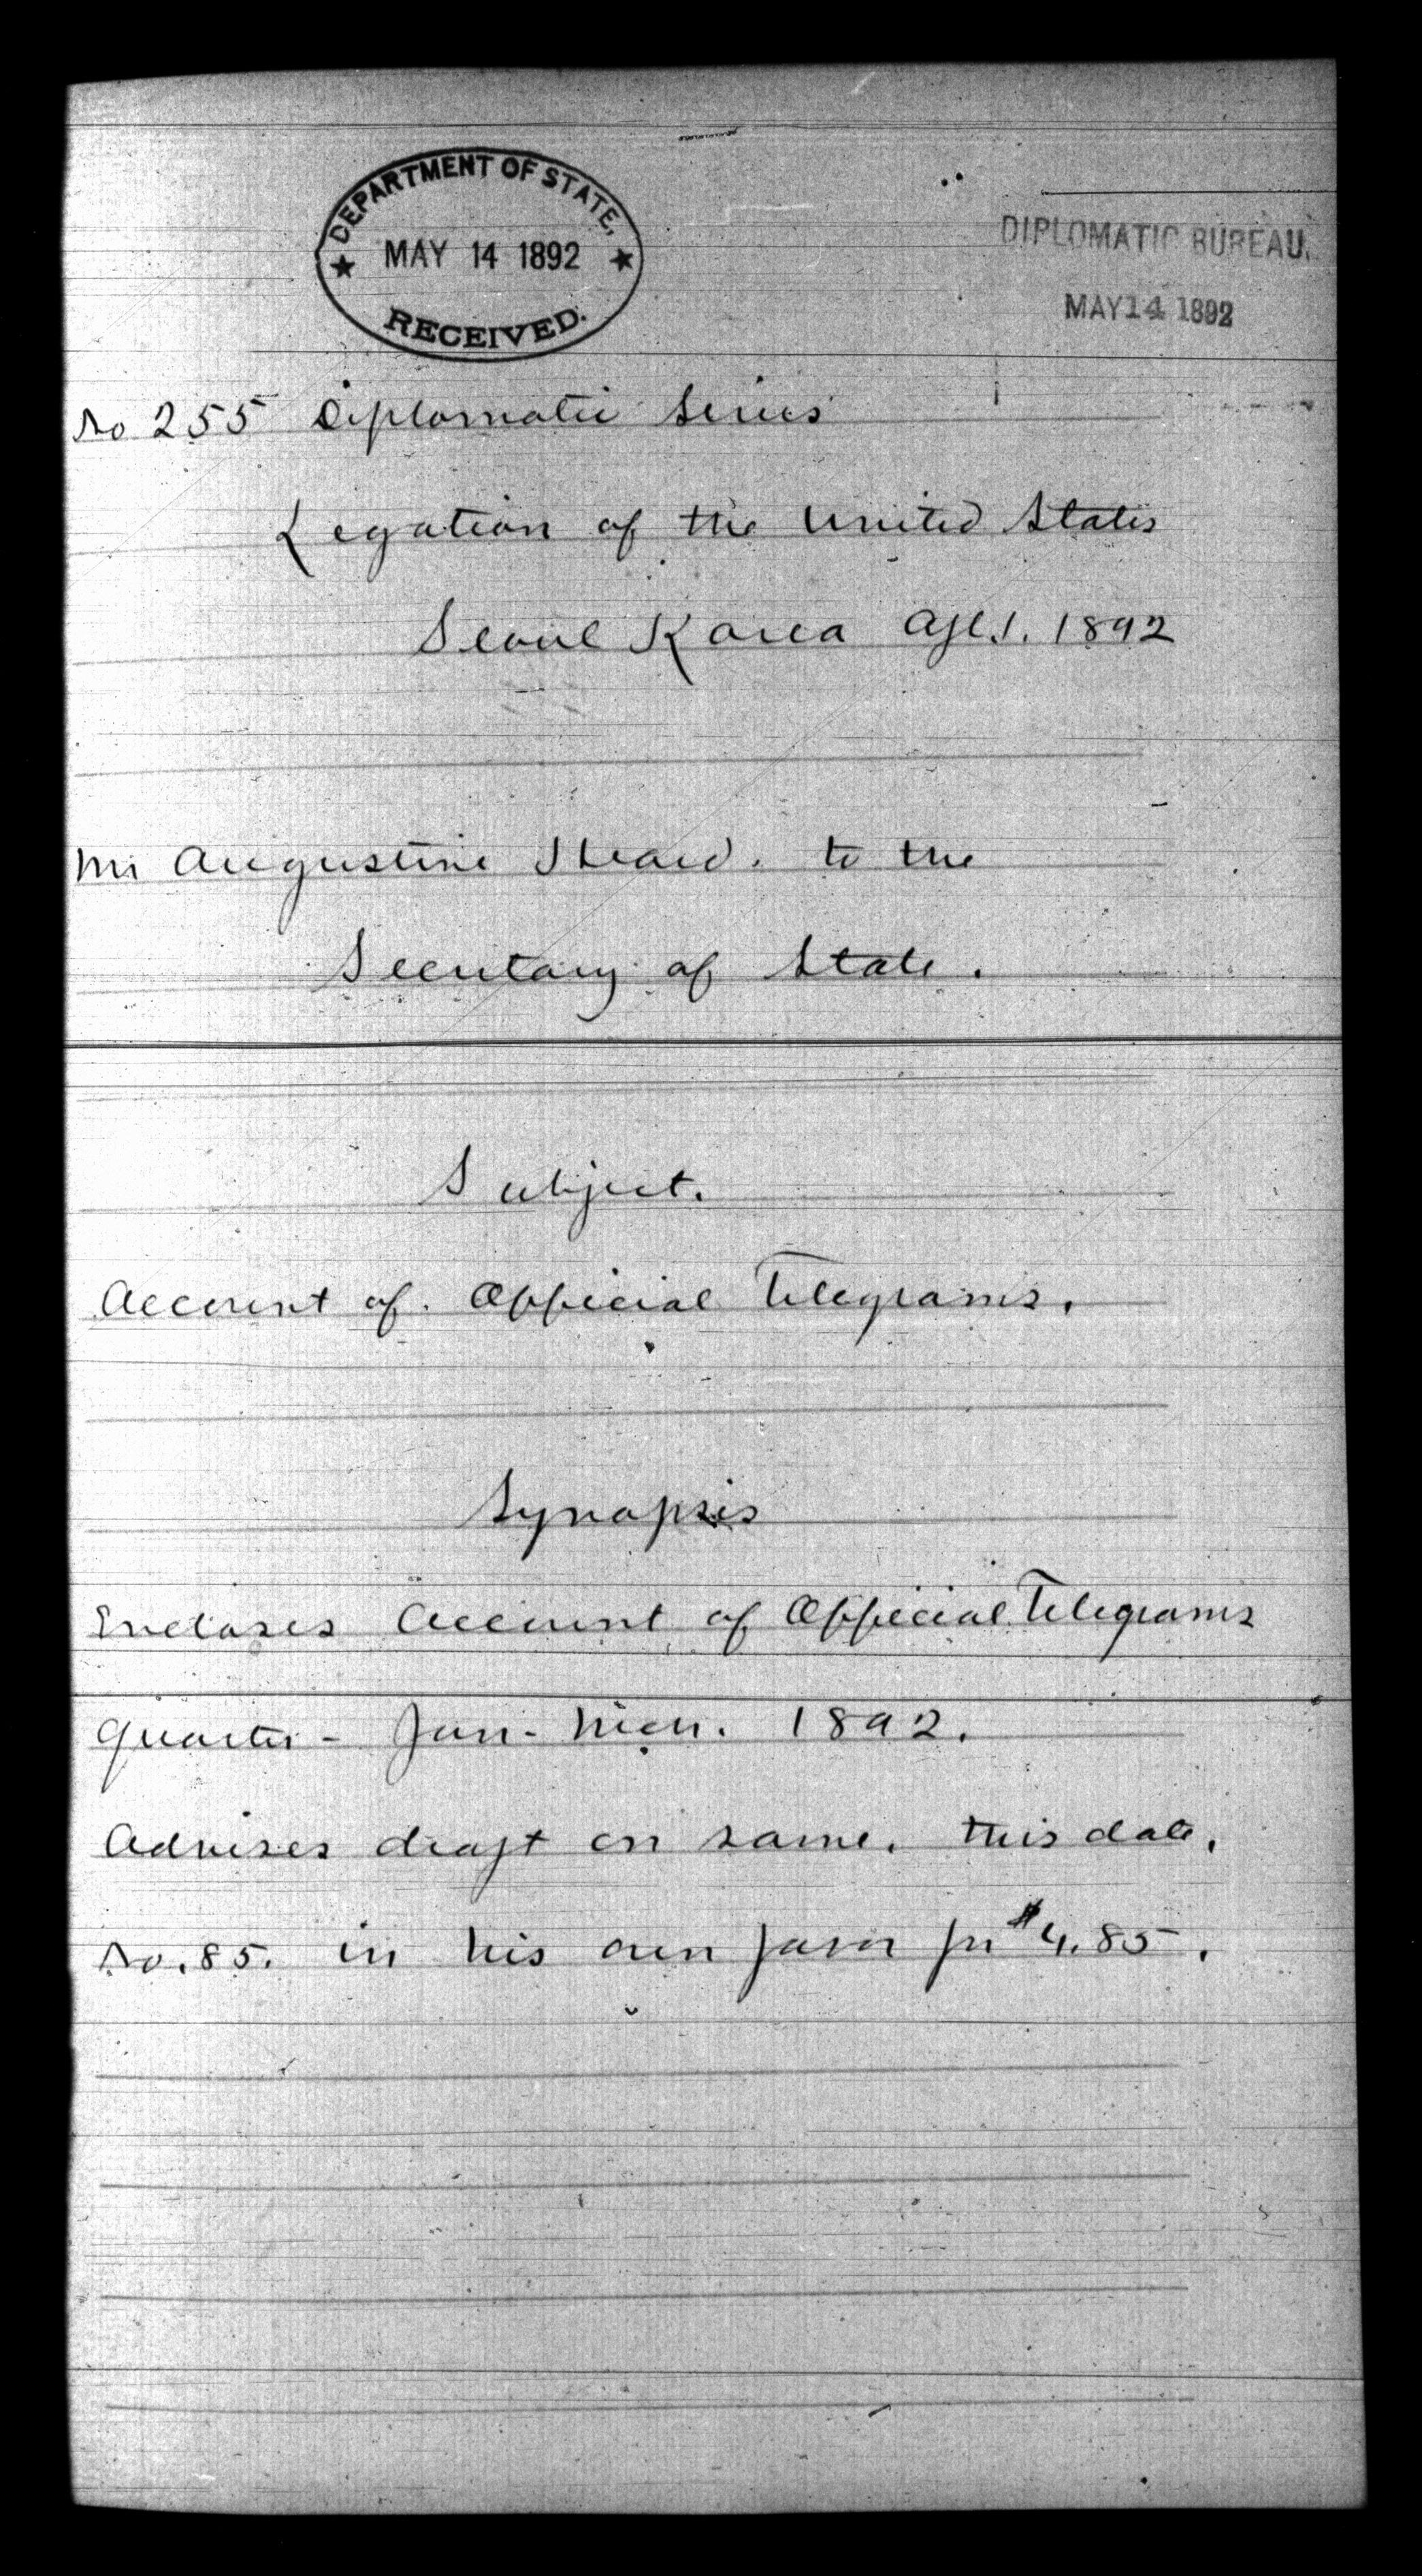 DEPARTMENT OF STATE,
MAY 14 1892
RECEIVED.
DIPLOMATIC BUREAU.
MAY 14 1892
No 255 Diplomatic Series
Legation of the United States
Seoul Korea Apl. 1. 1892
Mr Augustine Heard. to the
Secretary of State.
Subject.
Account of. Official Telegrams.
Synopsis
Encloses Account of Official Telegrams
Quarter - Jan - Mch. 1892.
Advises draft on same. this date.
No. 85. in his own favor for $4.85.